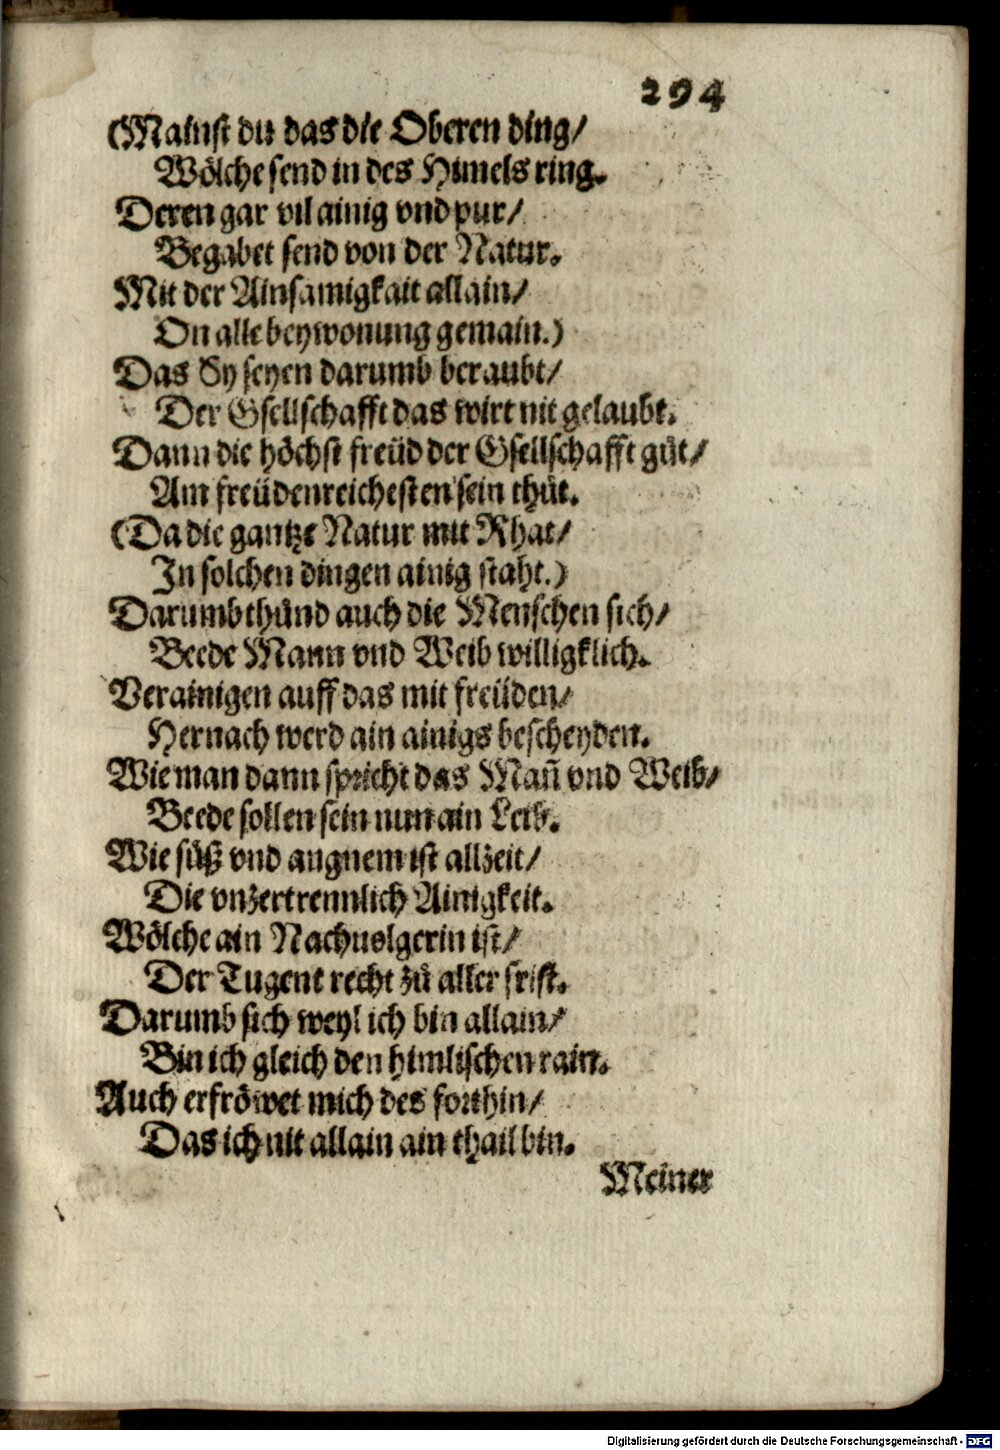 294
(Mainst du das die Oberen ding/
Wölche send in des Himels ring.
Deren gar vil ainig vnd pur/
Begabet send von der Natur.
Mit der Ainsamigkait allain/
On alle beywonung gemain.)
Das Sy seyen darumb beraubt/
Der Gsellschafft das wirt nit gelaubt.
Dann die höchst freüd der Gsellschafft gůt/
Am freüdenreichesten sein thůt.
(Da die gantze Natur mit Rhat/
In solchen dingen ainig staht.)
Darumb thůnd auch die Menschen sich/
Beede Mann vnd Weib willigklich.
Verainigen auff das mit freüden/
Hernach werd ain ainigs bescheyden.
Wie man dann spricht das Mañ vnd Weib/
Beede sollen sein nun ain Leib.
Wie süß vnd angnem ist allzeit/
Die vnzertrennlich Ainigkeit.
Wölche ain Nachuolgerin ist/
Der Tugent recht zů aller frist.
Darumb sich weyl ich bin allain/
Bin ich gleich den himlischen rain.
Auch erfröwet mich des forthin/
Das ich nit allain ain thail bin.
Meiner
Digitalisierung gefördert durch die Deutsche Forschungsgemeinschaft - DFG